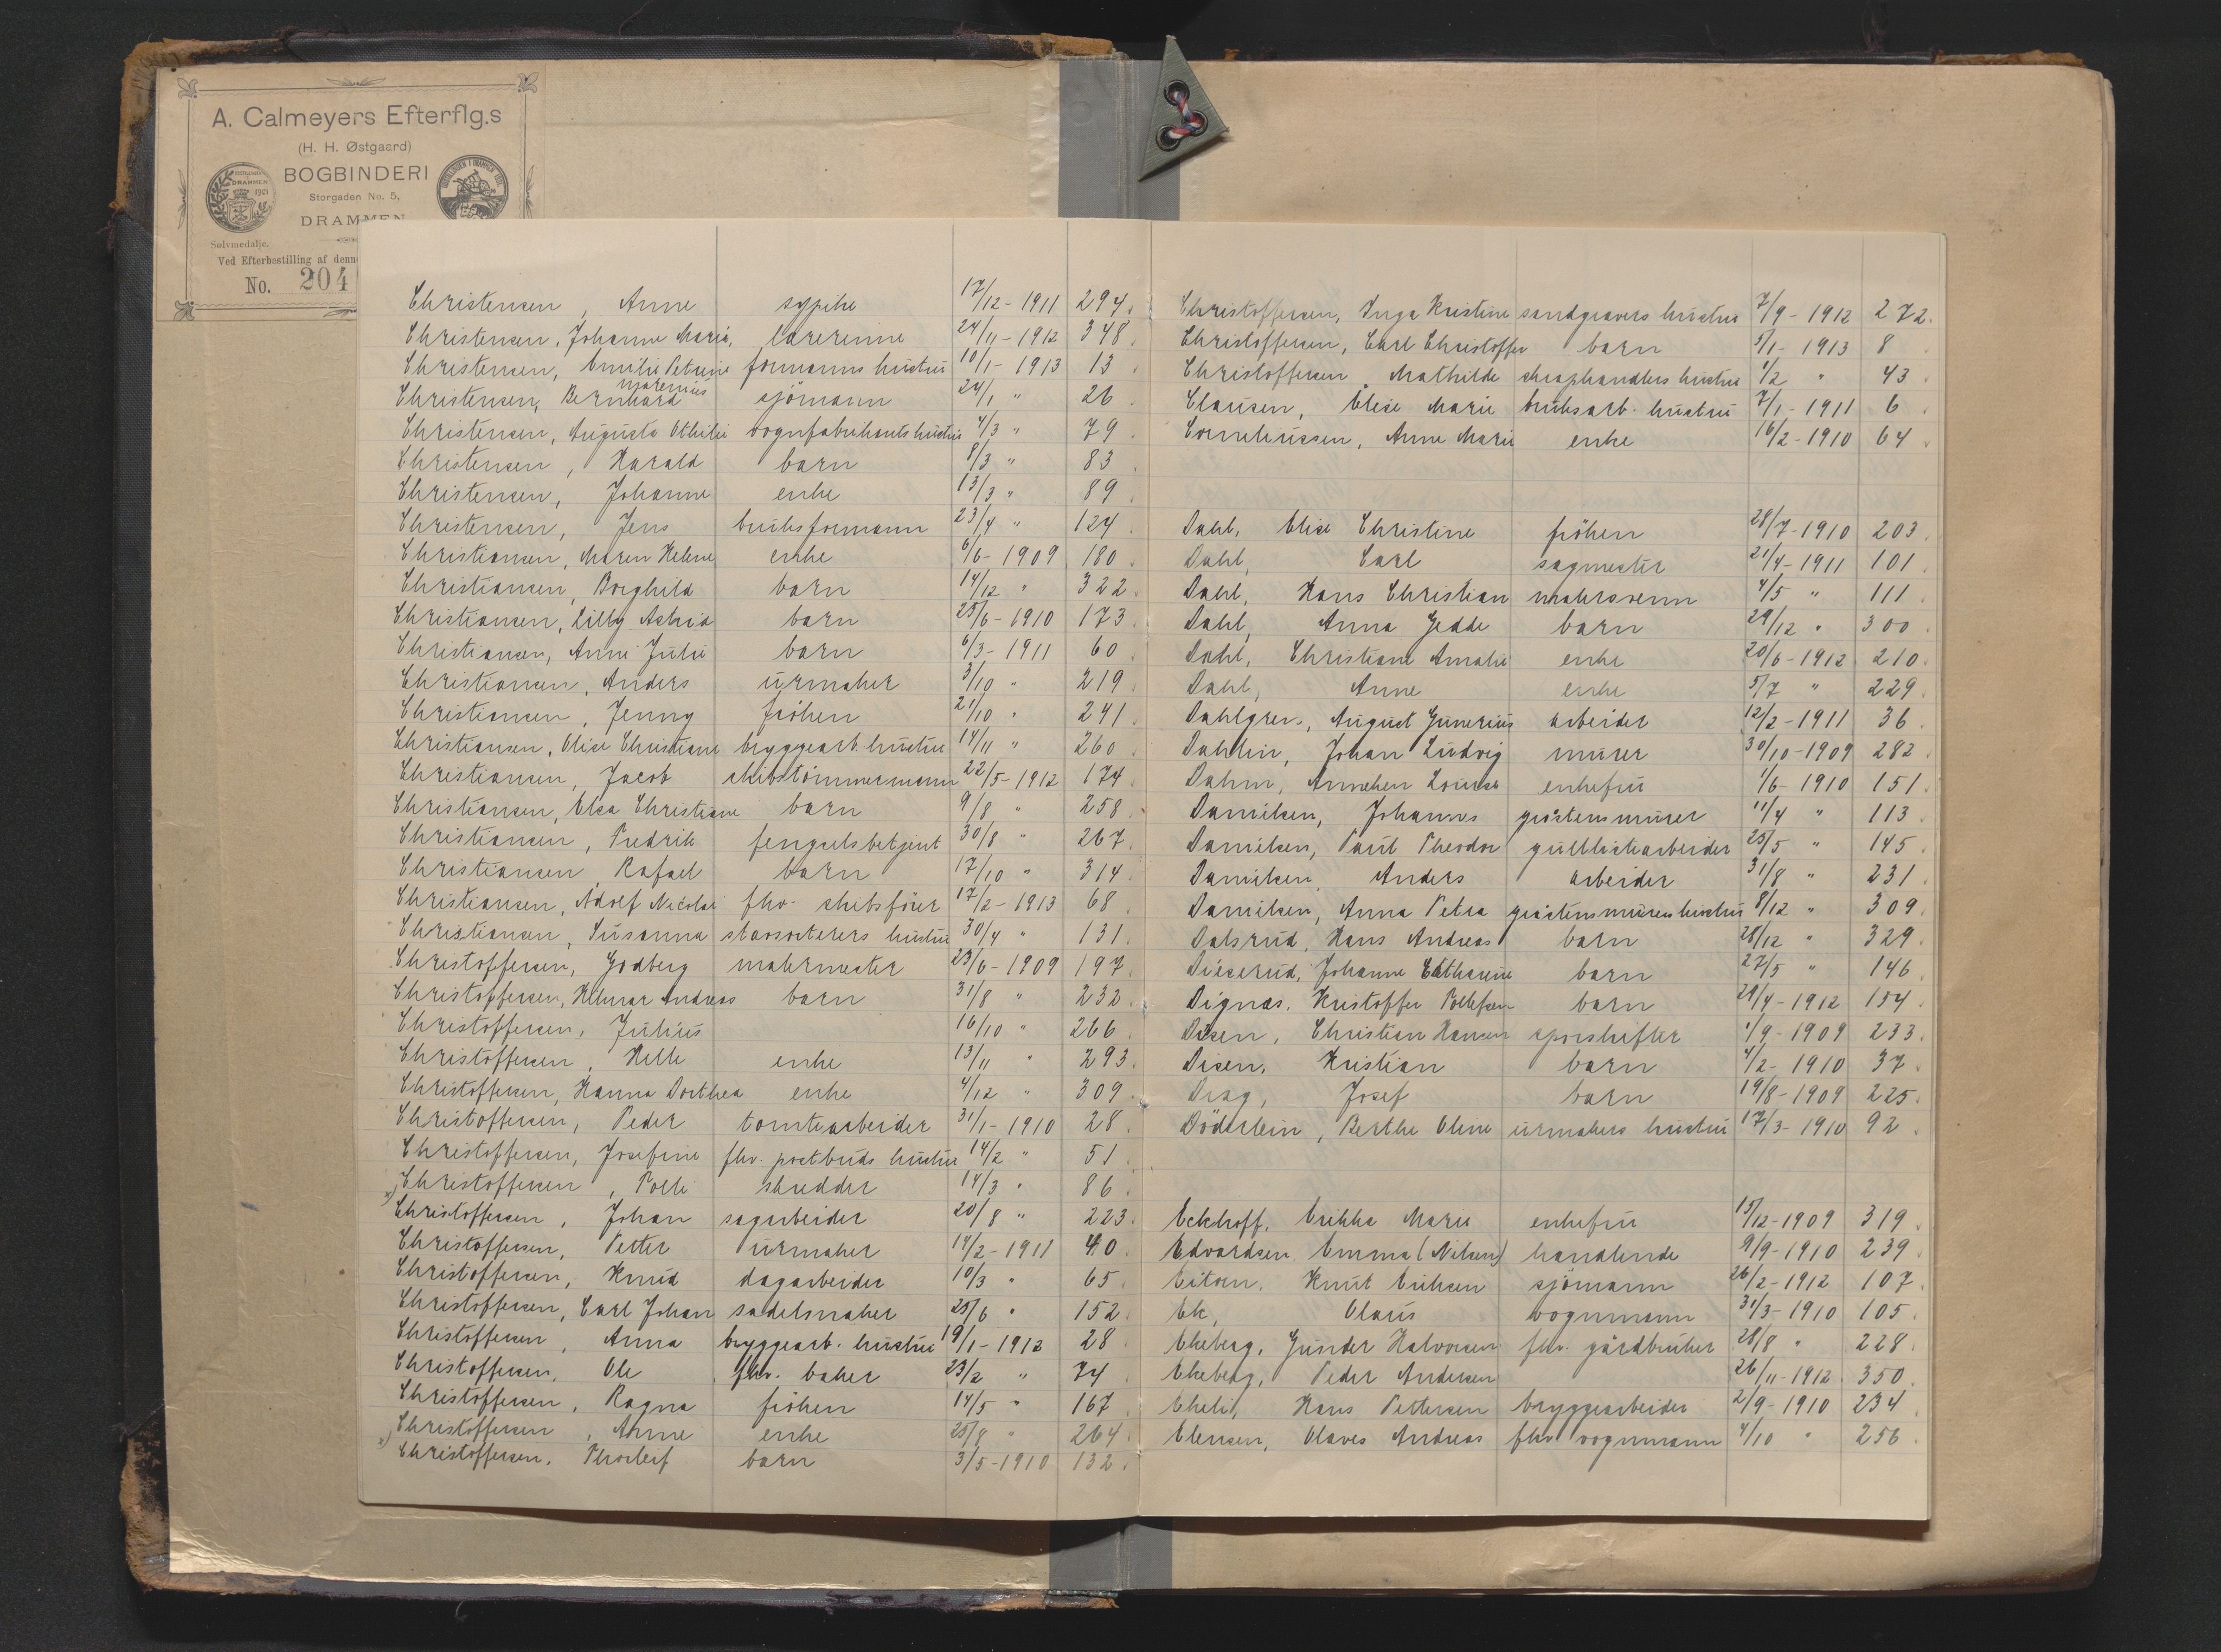 A. Calmeyers Efterflg.s
(H. H. Østgaard)
BOGBINDERI
Storgaden No. 5,
DRAMMEN
Sølvmedalje.
Ved Efterbestilling af denn
No. 204
Christensen, Anne sypike 17/12-1911 294.
Christensen, Johanne Marie, lærerinne 24/11-1912 348.
Christensen, Emilie Petrine formanns hustru 10/1-1913 13.
Christensen, Bernhard marenius sjömann 24/1 " 26.
Christensen, Augusta Othilie vognfabrikants hustru 4/3 " 79.
Christensen, Harald barn 8/3 " 83.
Christensen, Johanne enke 13/3 " 89.
Christensen, Jens bruksformann 23/4 " 124.
Christiansen, Maren Helene enke 6/6-1909 180.
Christiansen, Borghild barn 14/12 " 322.
Christiansen, Lilly Astrid barn 25/6-1910 173.
Christiansen, Anne Julie barn 6/3-1911 60.
Christiansen, Anders urmaker 3/10 " 219.
Christiansen, Jenny fröken 21/10 " 241.
Christiansen, Elise Christiane bryggearb. hustru 14/11 " 260.
Christiansen, Jacob skibstömmermann 22/5-1912 174.
Christiansen, Elsa Christiane barn 9/8 " 258.
Christiansen, Fredrik fengselsbetjent 30/8 " 267.
Christiansen, Rafael barn 17/10 " 314.
Christiansen, Adolf Nicolai fhv. skibsförer 17/2-1913 68.
Christiansen, Susanna stavsorterers hustru 30/4 " 131.
Christoffersen, Godberg malermester 23/6-1909 197.
Christoffersen, Hilmar Andreas barn 31/8 " 232.
Christoffersen, Julius 16/10 " 266.
Christoffersen, Helle enke 13/11 " 293.
Christoffersen, Hanna Dorthea enke 4/12 " 309.
Christoffersen, Peder tomtearbeider 31/1-1910 28.
Christoffersen, Josefine fhv. postbuds hustru 14/2 " 51.
x) Christoffersen, Polle skredder 14/3 " 86.
Christoffersen, Johan sagarbeider 20/8 " 223.
Christoffersen, Petter urmaker 14/2-1911 40.
Christoffersen, Knud dagarbeider 10/3 " 65.
Christoffersen, Carl Johan sadelmaker 25/6 " 152.
Christoffersen, Anna bryggearb. hustru 19/1-1912 28.
Christoffersen, Ole fhv. baker 23/2 " 74.
Christoffersen, Ragna fröken 14/5 " 167.
Christoffersen, Anne enke 25/8 " 264.
x) Christoffersen, Thorleif barn 3/5-1910 132.
Christoffersen, Inga Kristine sandgravers hustru 7/9-1912 272.
Christoffersen, Carl Christoffer barn 5/1-1913 8.
Christoffersen, Mathilde skraphandlers hustru 4/2 " 43.
Clausen, Elise Marie bruksarb. hustru 7/1-1911 6.
Corneliussen, Anne Marie enke 16/2-1910 64.
Dahl, Elise Christine fröken 28/7-1910 203.
Dahl, Carl sagmester 21/4-1911 101.
Dahl, Hans Christian malersvenn 4/5 " 111.
Dahl, Anna Jedde barn 29/12 " 300.
Dahl, Christiane Amalie enke 20/6-1912 210.
Dahl, Anne enke 5/7 " 229.
Dahlgren, August Junerius arbeider 12/2-1911 36.
Dahlin, Johan Ludvig murer 30/10-1909 282.
Dahm, Anneken Lovise enkefru 1/6-1910 151.
Danielsen, Johannes gråstensmurer 11/4 " 113.
Danielsen, Paul Theodor gulllistearbeider 25/5 " 145.
Danielsen, Anders arbeider 31/8 " 231.
Danielsen, Anna Petra gråstensmurers hustru 8/12 " 309.
Dalsrud, Hans Andreas barn 28/12 " 329.
Disserud, Johanne Cathrine barn 27/5 " 146.
Dignæs, Kristoffer Pollefsen barn 29/4-1912 154.
Disen, Christian Hansen sporskifter 1/9-1909 233.
Disen, Kristian barn 4/2-1910 37.
Drag, Josef barn 19/8-1909 225.
Döderlein, Berthe Oline urmakers hustru 17/3-1910 92.
Eckhoff, Erikka Marie enkefru 15/12-1909 319.
Edvardsen, Emma (Nilsen) handlende 9/9-1910 239.
Eitran, Knut Eriksen sjömann 26/2-1912 107.
Ek, Olaus vognmann 31/3-1910 105.
Ekeberg, Gunder Halvorsen fhv. gårdbruker 28/8 " 228.
Ekeberg, Peder Andersen 26/11-1912 350.
Ekeli, Hans Pettersen bryggearbeider 2/9-1910 234.
Elensen, Olaves Andreas fhv. vognmann 4/10 " 256.